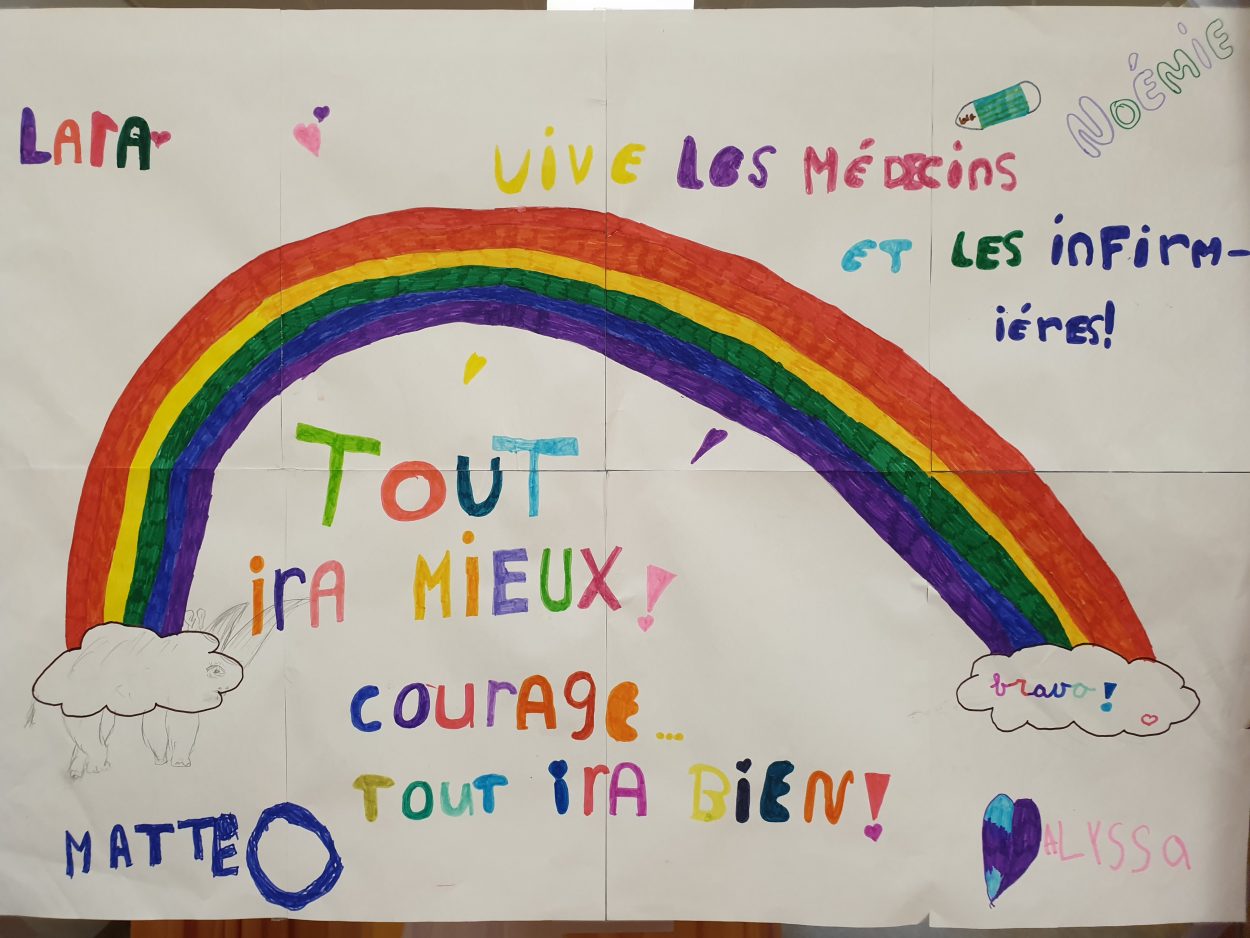 NOÉMIE
LArA
VIVE LES MÉDECINS
ET LES INFIRM-
IÉRES!
TOUT
IrA MIEUX!
courage...
TOUT IrA BIEN!
bravo!
MATTEO
ALYSSA